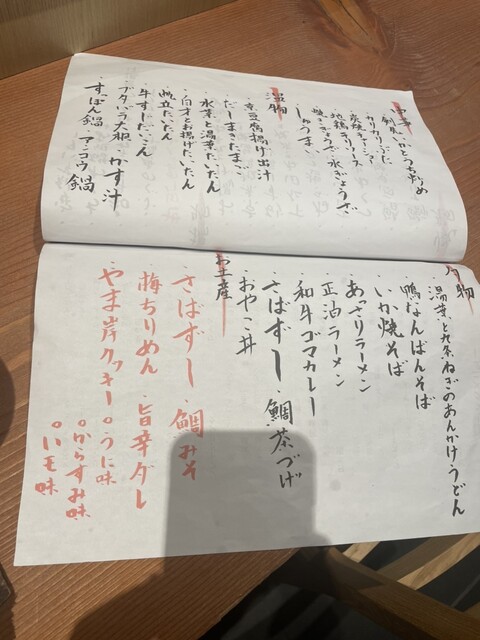 カリカリぶた
・焼きぎょうざ・水ぎょうざ
・しゅうまい
温物
・京豆腐揚げ出汁
・だしまきたまご
・水菜と湯葉たいたん
・白才とお揚げたいたん
・帆立たいたん
・牛すじだいこん
・ブタバラ大根・かす汁
・すっぽん鍋 アンコウ鍋
〆物
・湯葉と九条ねぎのあんかけうどん
・鴨なんばんそば
・いか焼そば
・あっさりラーメン
・正油ラーメン
・和牛ゴマカレー
・さばずし・鯛茶づけ
・おやこ丼
お土産
・さばずし・鯛みそ
・梅ちりめん・旨辛ダレ
・やま岸クッキー。うに味
。からすみ味